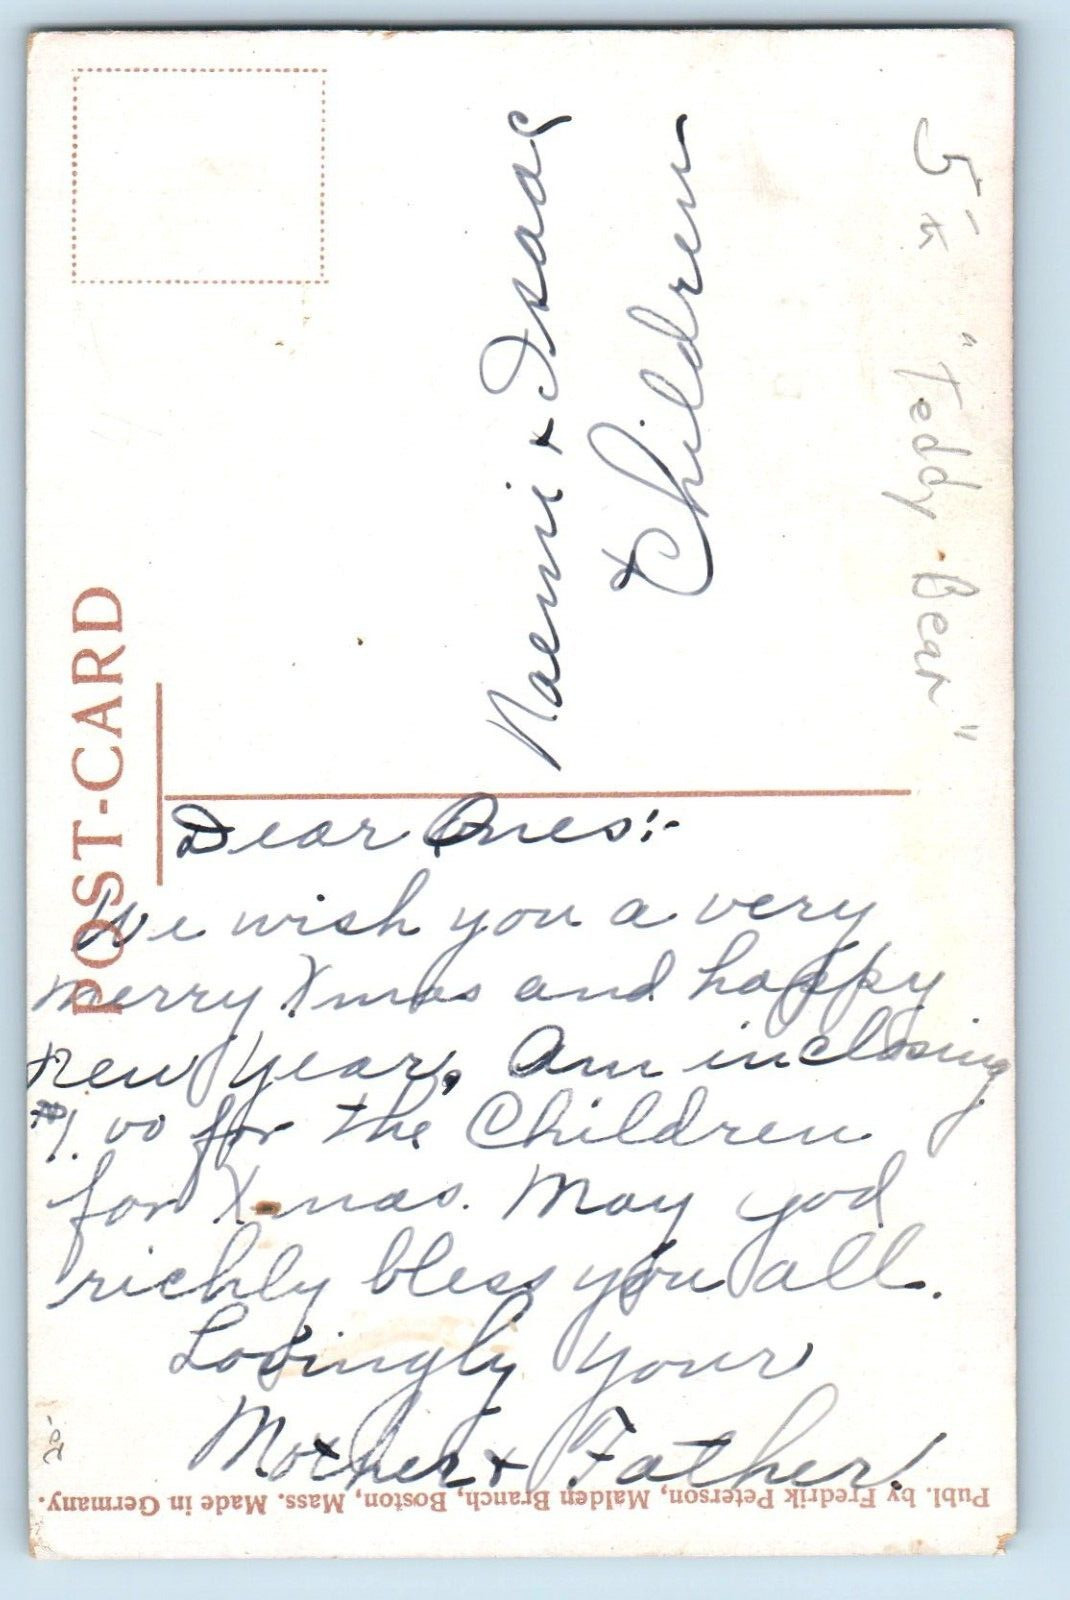 POST-CARD
Naemi + Isaac
+ Children
5-
"Teddy-Bear"
Dear Ones:-
We wish you a very
merry Xmas and happy
new year, Am inclosing
$1.00 for the Children
for X-mas. May god
richly bless you all.
Lovingly your
Mother + Father!
Publ. by Fredrik Peterson, Malden Branch, Boston, Mass. Made in Germany.